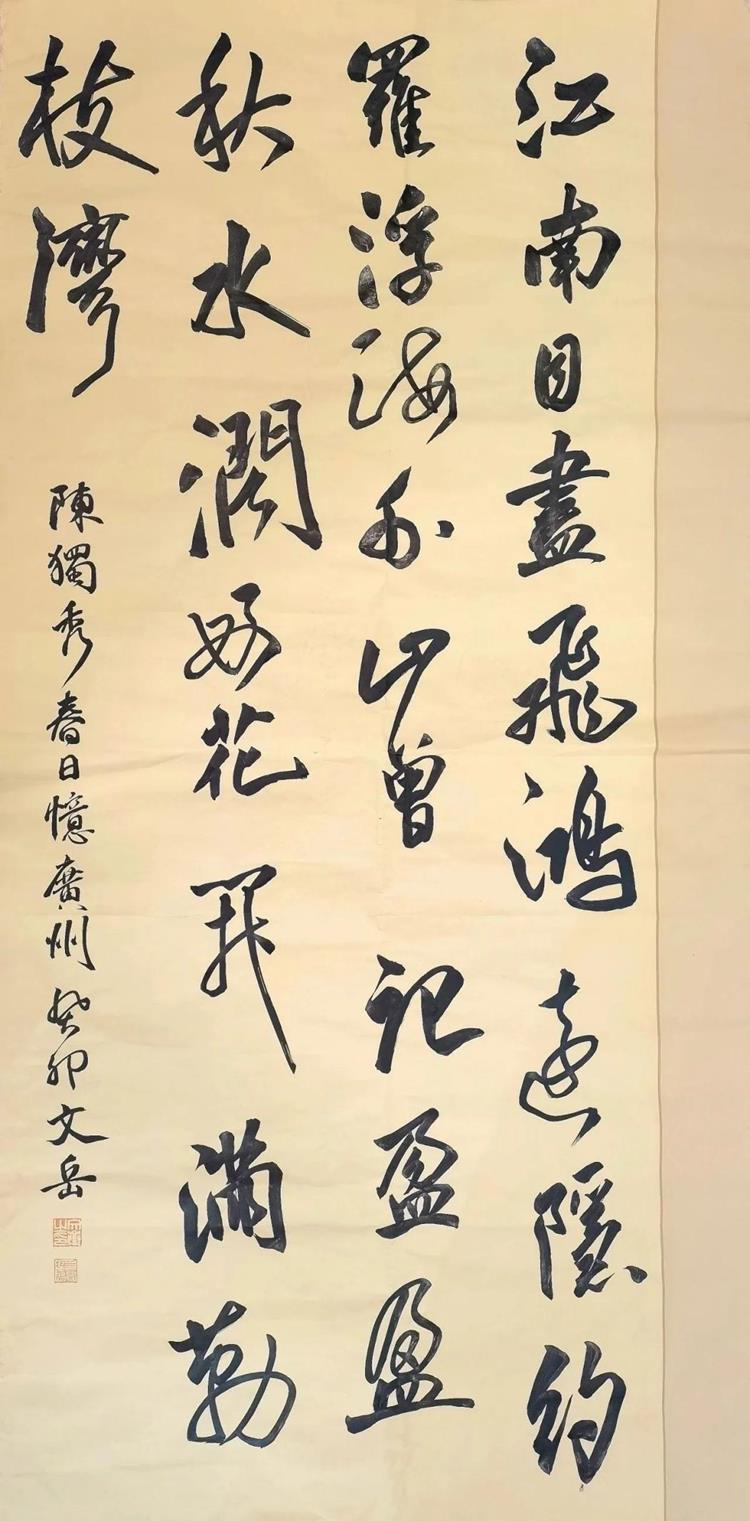 江南目盡飛鴻遠隱約
羅浮海外山曾記盈盈
秋水潤好花開滿勒
枝灣
陳獨秀春日憶廣州癸卯文岳